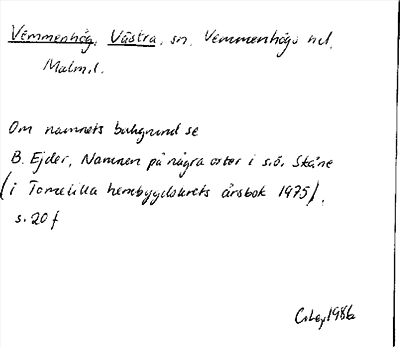 Vemmenhög, Västra, sn, Vemmenhögs hd,
Malm.l.
Om namnets bakgrund se
B. Ejder, Namnen på några orter i s.ö. Skåne
(i Tomelilla hembygdskrets årsbok 1975),
s. 20 f
1986